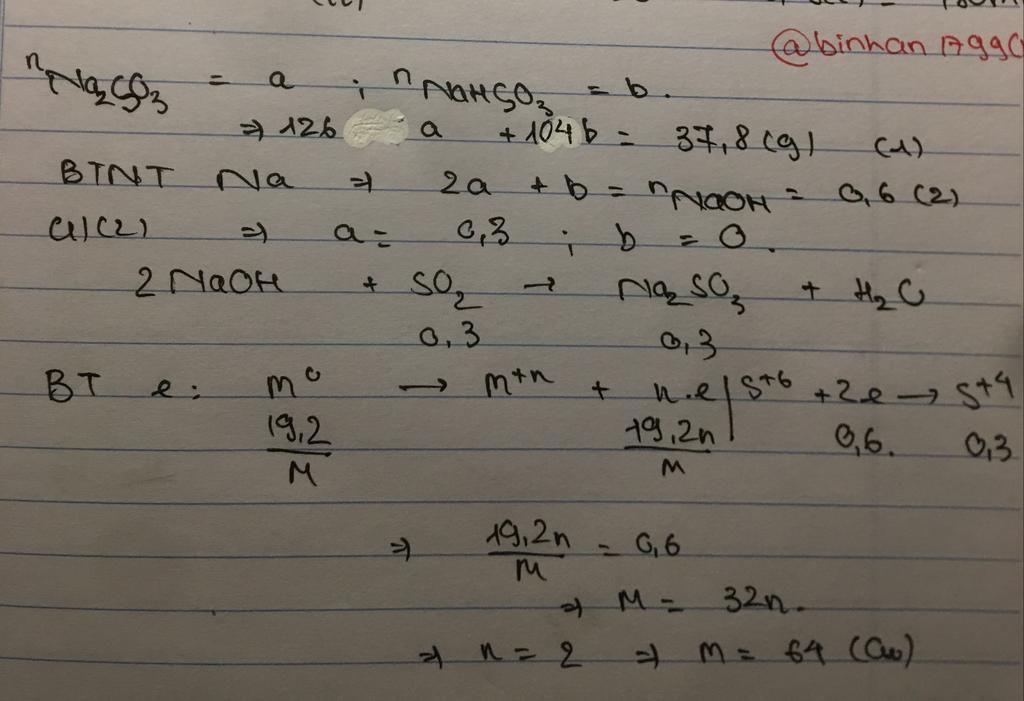 @binhan1799
nNa2SO3 = a ; nNaHSO3 = b.
⇒ 126 a + 104b = 37,8(g) (1)
BTNT Na ⇒ 2a + b = nNaOH = 0,6 (2)
(1)(2) ⇒ a = 0,3 ; b = 0.
2NaOH + SO2 → Na2SO3 + H2O
0,3 0,3
BT e: M^0 → M^+n + n.e | S^+6 + 2e → S^+4
19,2/M 19,2n/M 0,6. 0,3
⇒ 19,2n/M = 0,6
⇒ M = 32n.
⇒ n = 2 ⇒ M = 64 (Cu)